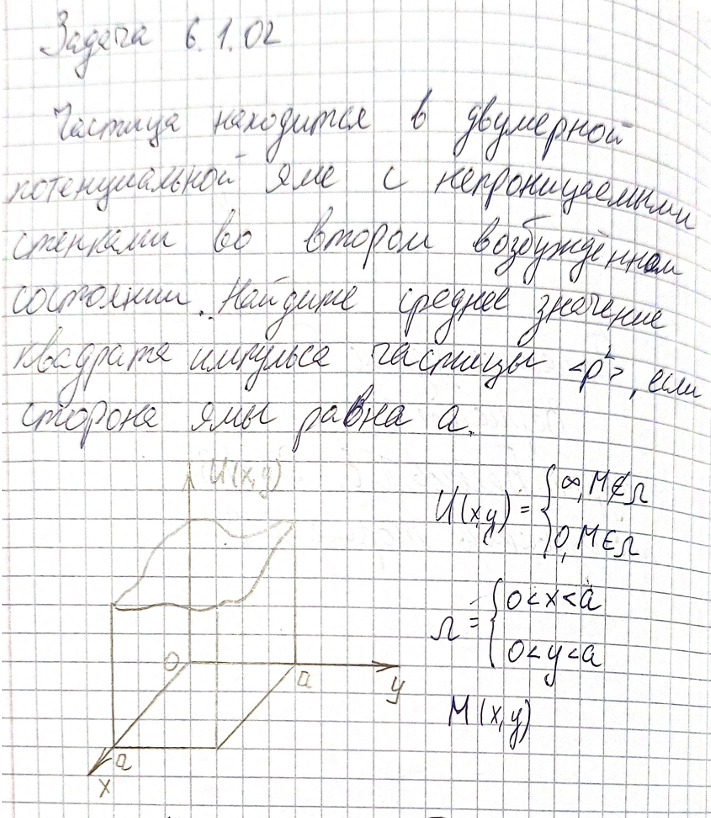 Задача 6.1.02
Частица находится в двумерной
потенциальной яме с непроницаемыми
стенками во втором возбуждённом
состоянии. Найдите среднее значение
квадрата импульса частицы <p²>, если
сторона ямы равна a.
U(x,y)
U(x,y) = { ∞, M∉Ω
0, M∈Ω
Ω = { 0<x<a
0<y<a
M(x,y)
0
a
y
a
x